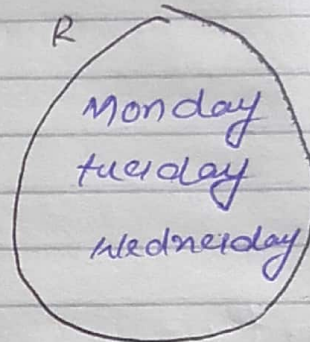 R
Monday
tuesday
wednesday